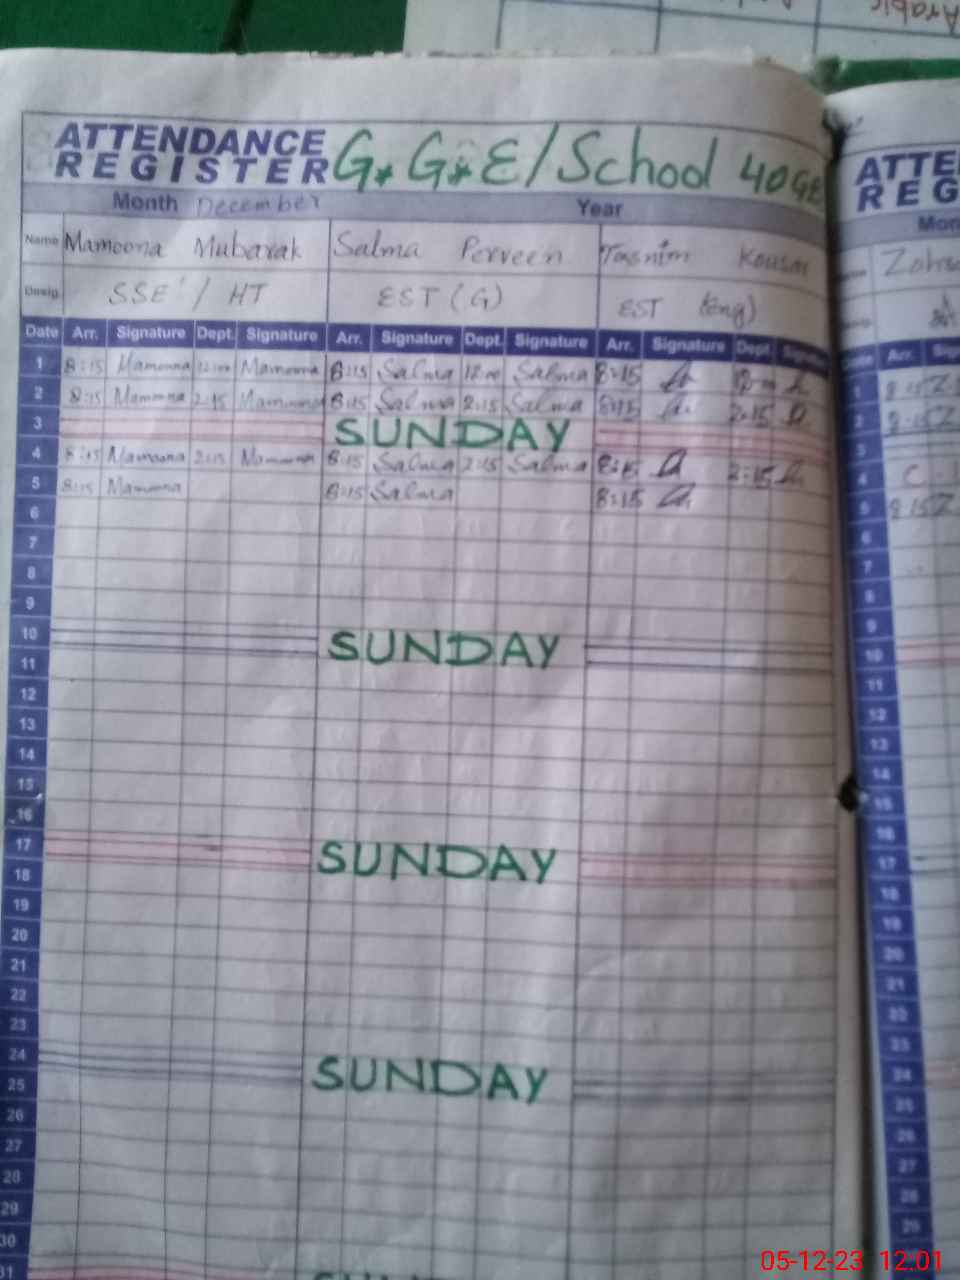 Arabic
ATTENDANCE
REGISTER G.G.E/School 40GE
Month December Year
Name Mamoona Mubarak Salma Perveen Tasnim Kousar
Desig. SSE / HT EST (G) EST (Eng)
Date Arr. Signature Dept. Signature Arr. Signature Dept. Signature Arr. Signature Dept. Signature
1 8:15 Mamoona 12:00 Mamoona 8:15 Salma 12:00 Salma 8:15 12:00
2 8:15 Mamoona 2:15 Mamoona 8:15 Salma 2:15 Salma 8:15 2:15
3 SUNDAY
4 8:15 Mamoona 2:15 Mamoona 8:15 Salma 2:15 Salma 8:15 2:15
5 8:15 Mamoona 8:15 Salma 8:15
6
7
8
9
10 SUNDAY
11
12
13
14
15
16
17 SUNDAY
18
19
20
21
22
23
24 SUNDAY
25
26
27
28
29
30
31
ATTE
REG
Mon
Arr.
1 8:15
2 8:15
3
4
5 8:15
6
7
8
9
10
11
12
13
14
15
16
17
18
19
20
21
22
23
24
25
26
27
28
29
05-12-23 12:01